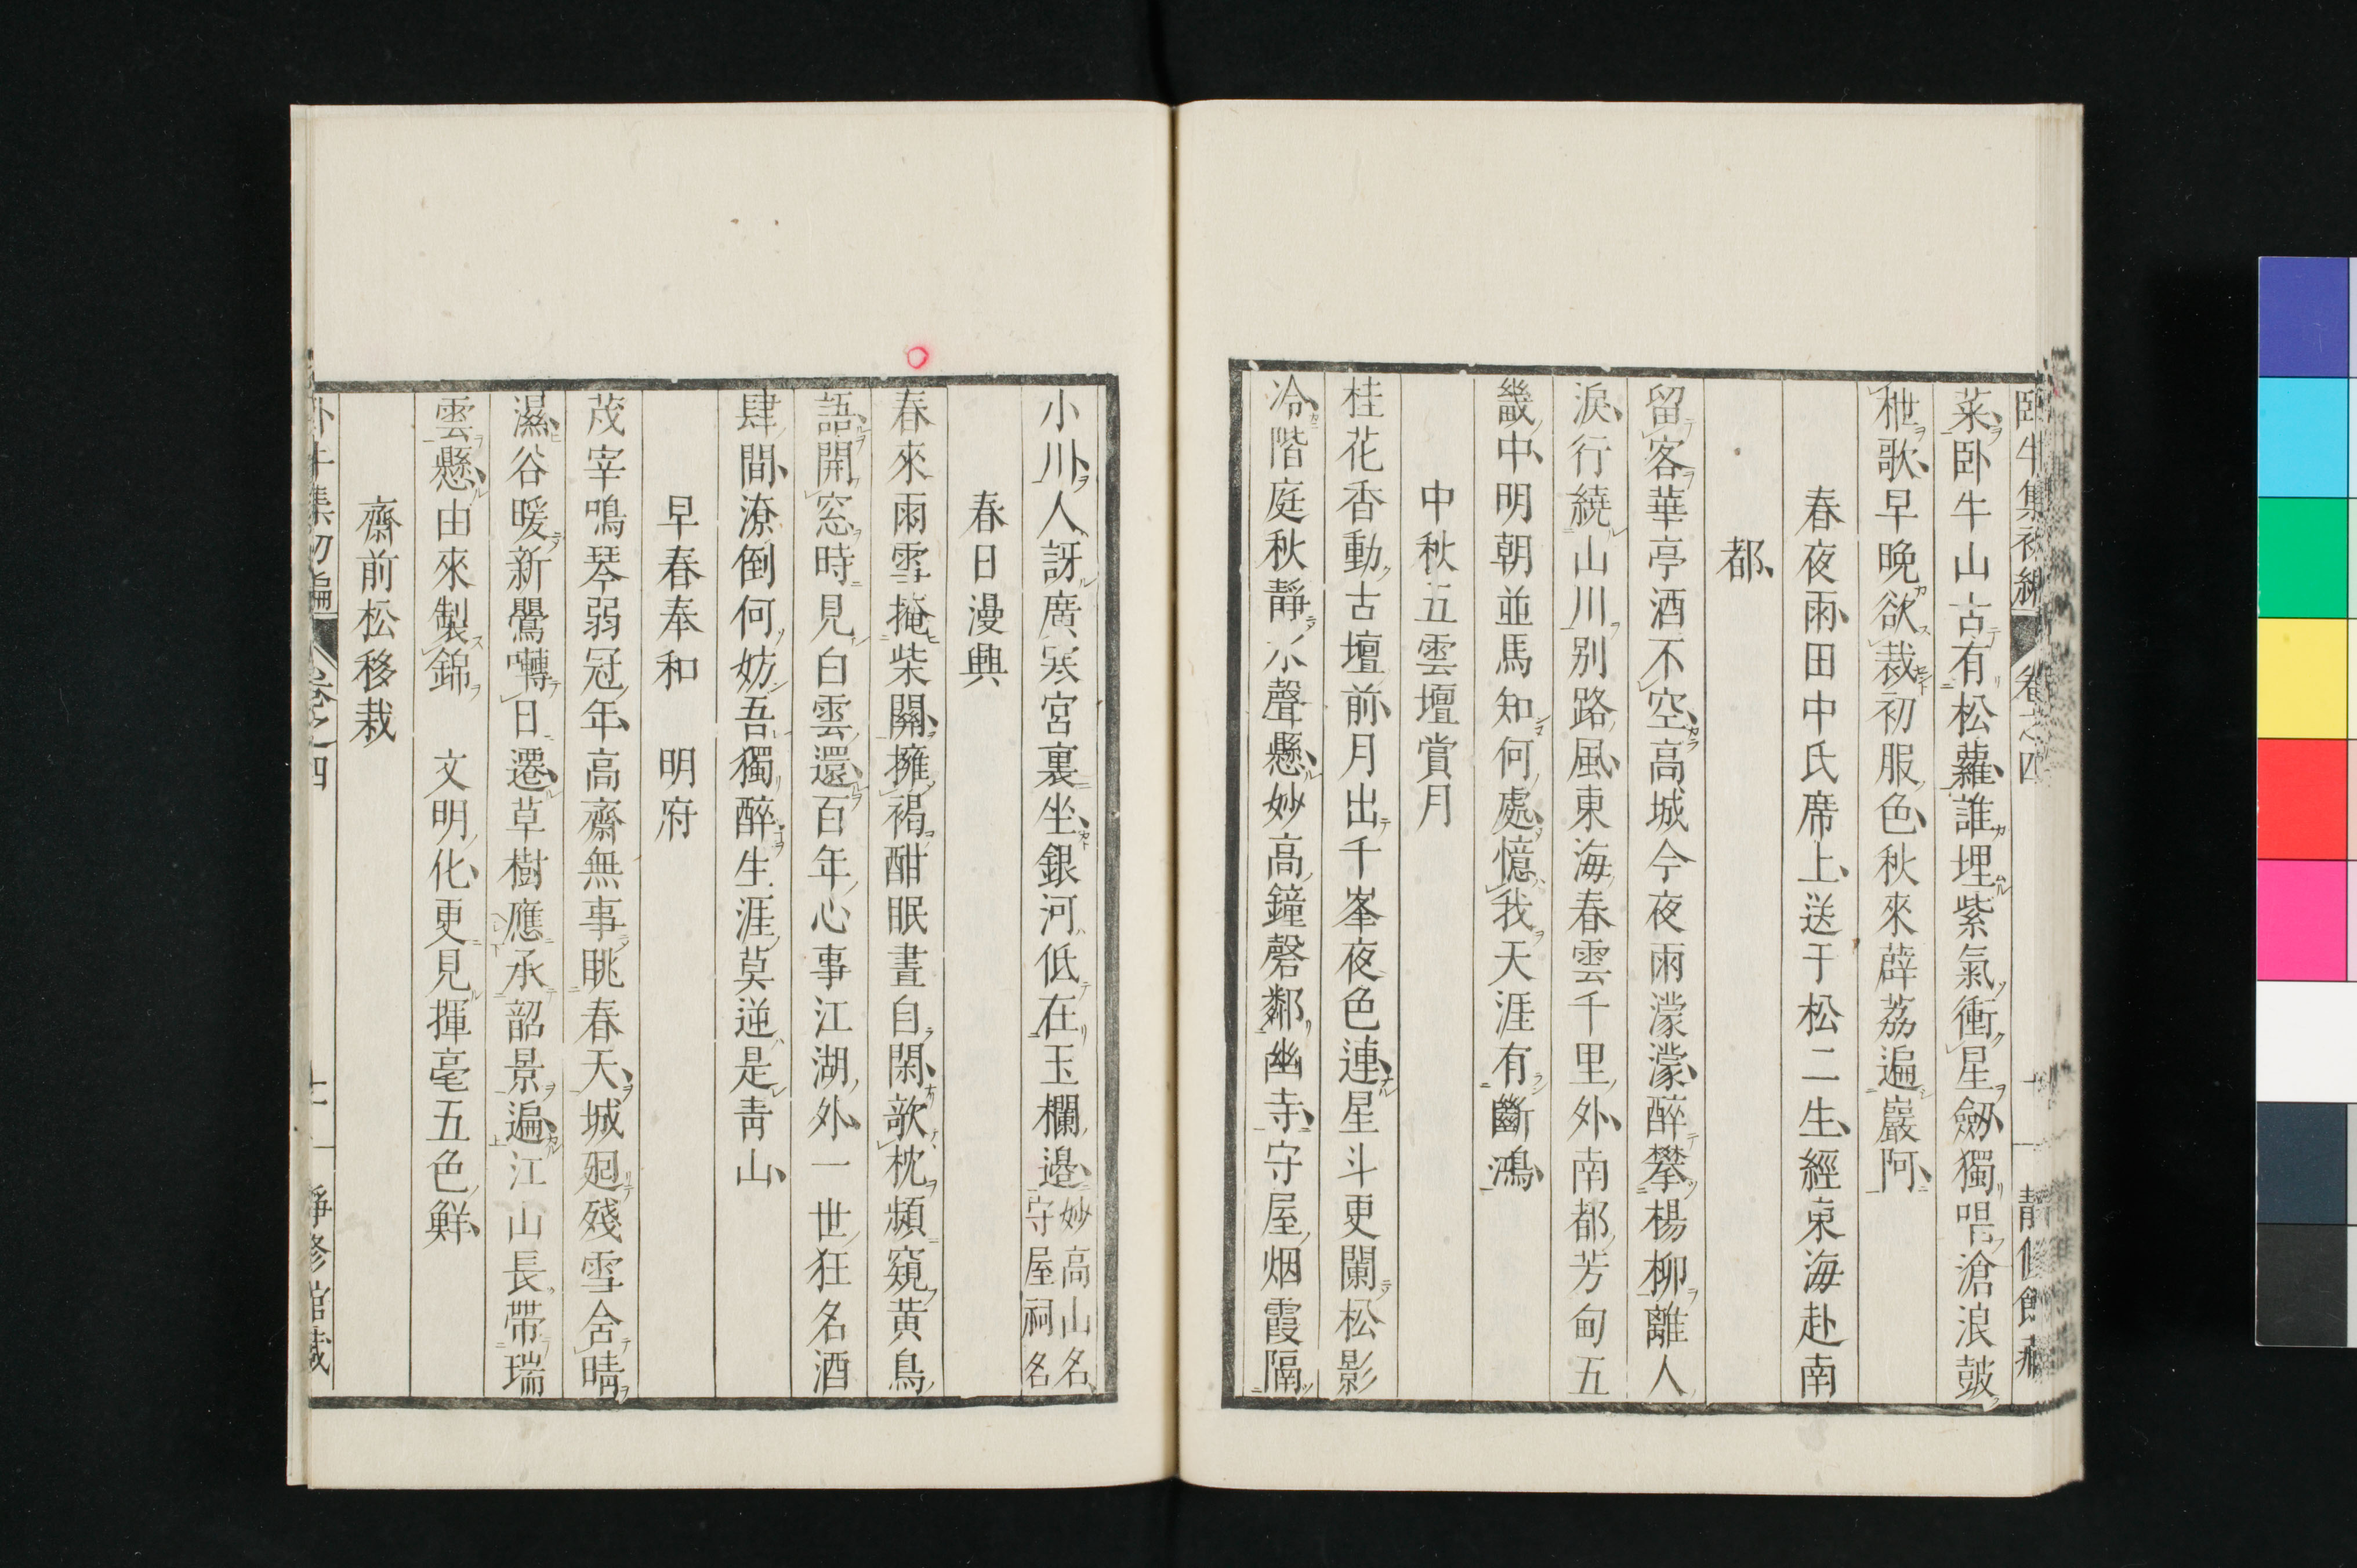 臥牛集初編 卷之四 十一 靜修館藏
菜臥牛山古有松蘿誰埋紫氣衝星劒獨唱滄浪皷
枻歌早晚欲裁初服色秋來薜荔遍巖阿
春夜雨田中氏席上送于松二生經東海赴南
都
留客華亭酒不空高城今夜雨濛濛醉攀楊柳離人
淚行繞山川別路風東海春雲千里外南都芳甸五
畿中明朝並馬知何處憶我天涯有斷鴻
中秋五雲壇賞月
桂花香動古壇前月出千峯夜色連星斗更闌松影
冷階庭秋靜水聲懸妙高鐘磬鄰幽寺守屋烟霞隔
小川人訝廣寒宮裏坐銀河低在玉欄邊妙高山名守屋祠名
春日漫興
春來雨雪掩柴關擁褐酣眠晝自閑欹枕頻窺黃鳥
語開窓時見白雲還百年心事江湖外一世狂名酒
肆間潦倒何妨吾獨醉生涯莫逆是靑山
早春奉和　明府
茂宰鳴琴弱冠年高齋無事眺春天城廻殘雪含晴
濕谷暖新鶯囀日遷草樹應承韶景遍江山長帶瑞
雲懸由來製錦　文明化更見揮毫五色鮮
齋前松移栽
臥牛集初編 卷之四 十一 靜修館藏